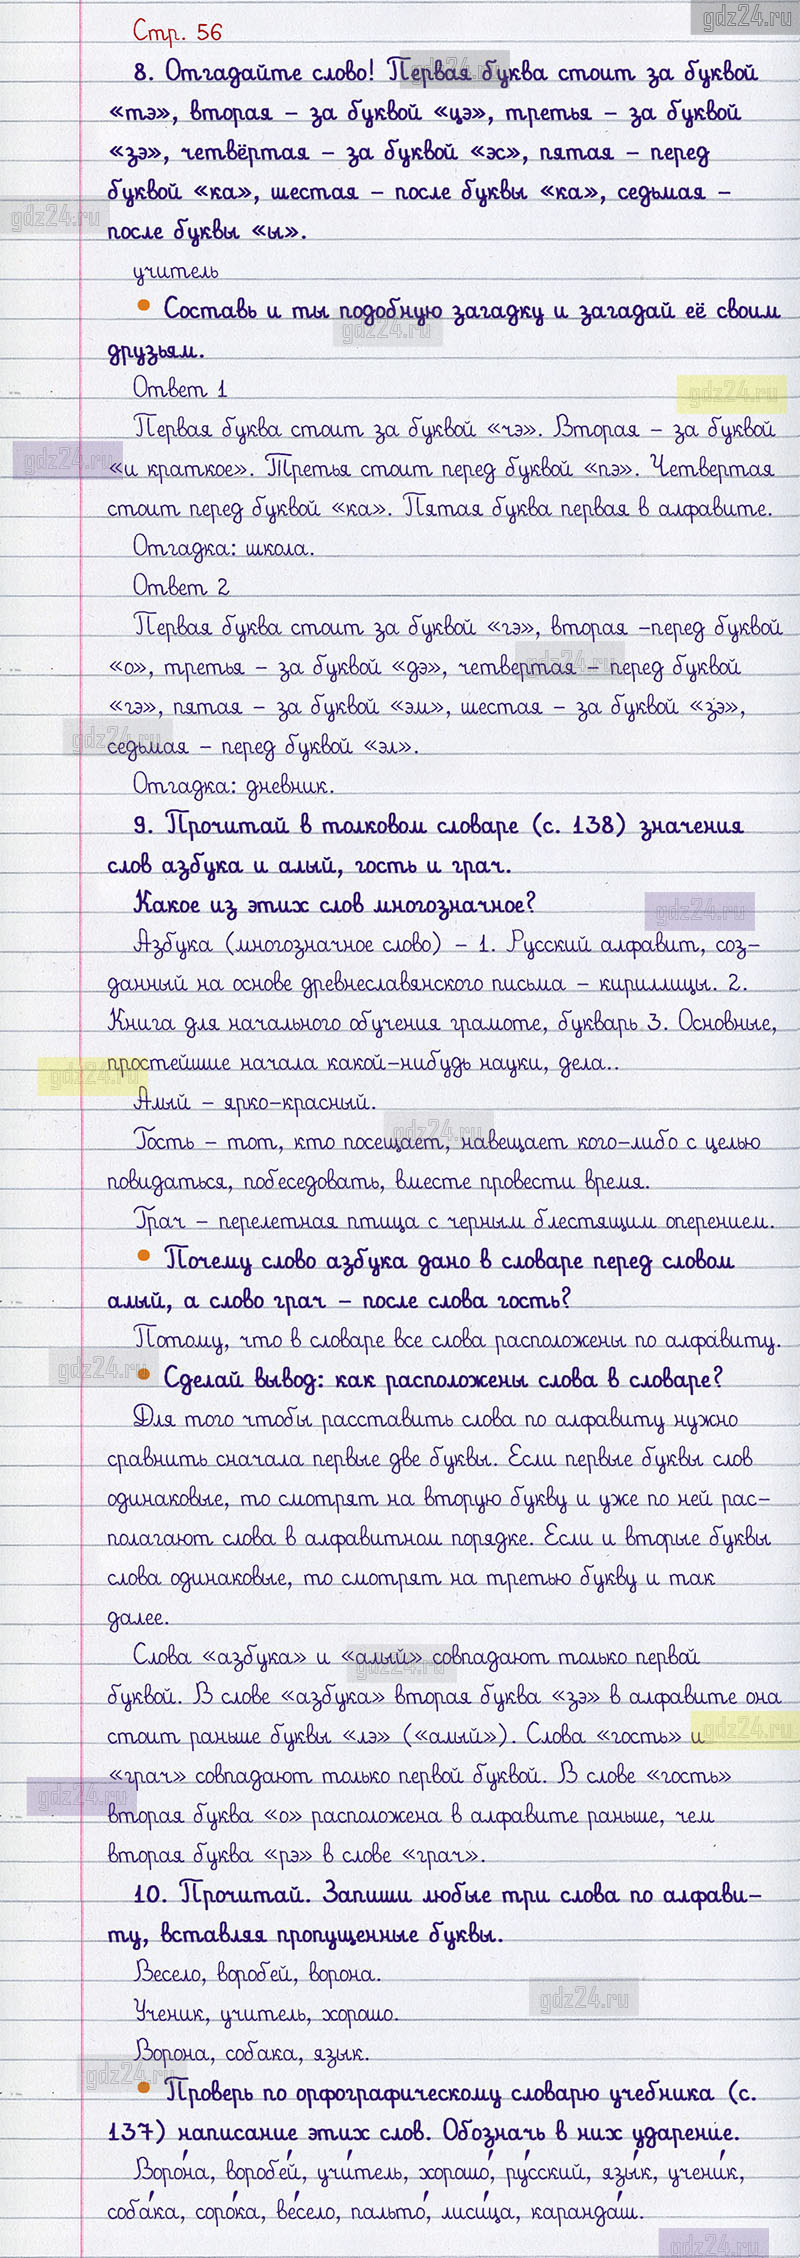 gdz24.ru
Стр. 56
8. Отгадайте слово! Первая буква стоит за буквой
«тэ», вторая – за буквой «цэ», третья – за буквой
«зэ», четвёртая – за буквой «эс», пятая – перед
буквой «ка», шестая – после буквы «ка», седьмая –
после буквы «ы».
учитель
Составь и ты подобную загадку и загадай её своим
друзьям.
Ответ 1
Первая буква стоит за буквой «чэ». Вторая – за буквой
«и краткое». Третья стоит перед буквой «пэ». Четвертая
стоит перед буквой «ка». Пятая буква первая в алфавите.
Отгадка: школа.
Ответ 2
Первая буква стоит за буквой «гэ», вторая –перед буквой
«о», третья – за буквой «дэ», четвертая – перед буквой
«гэ», пятая – за буквой «эм», шестая – за буквой «зэ»,
седьмая – перед буквой «эл».
Отгадка: дневник.
9. Прочитай в толковом словаре (с. 138) значения
слов азбука и алый, гость и грач.
Какое из этих слов многозначное?
Азбука (многозначное слово) – 1. Русский алфавит, соз-
данный на основе древнеславянского письма – кириллицы. 2.
Книга для начального обучения грамоте, букварь 3. Основные,
простейшие начала какой-нибудь науки, дела..
Алый – ярко-красный.
Гость – тот, кто посещает, навещает кого-либо с целью
повидаться, побеседовать, вместе провести время.
Грач – перелетная птица с черным блестящим оперением.
Почему слово азбука дано в словаре перед словом
алый, а слово грач – после слова гость?
Потому, что в словаре все слова расположены по алфавиту.
Сделай вывод: как расположены слова в словаре?
Для того чтобы расставить слова по алфавиту нужно
сравнить сначала первые две буквы. Если первые буквы слов
одинаковые, то смотрят на вторую букву и уже по ней рас-
полагают слова в алфавитном порядке. Если и вторые буквы
слова одинаковые, то смотрят на третью букву и так
далее.
Слова «азбука» и «алый» совпадают только первой
буквой. В слове «азбука» вторая буква «зэ» в алфавите она
стоит раньше буквы «лэ» («алый»). Слова «гость» и
«грач» совпадают только первой буквой. В слове «гость»
вторая буква «о» расположена в алфавите раньше, чем
вторая буква «рэ» в слове «грач».
10. Прочитай. Запиши любые три слова по алфави-
ту, вставляя пропущенные буквы.
Весело, воробей, ворона.
Ученик, учитель, хорошо.
Ворона, собака, язык.
Проверь по орфографическому словарю учебника (с.
137) написание этих слов. Обозначь в них ударение.
Воро́на, воробе́й, учи́тель, хорошо́, ру́сский, язы́к, учени́к,
соба́ка, соро́ка, ве́село, пальто́, лиси́ца, каранда́ш.
gdz24.ru